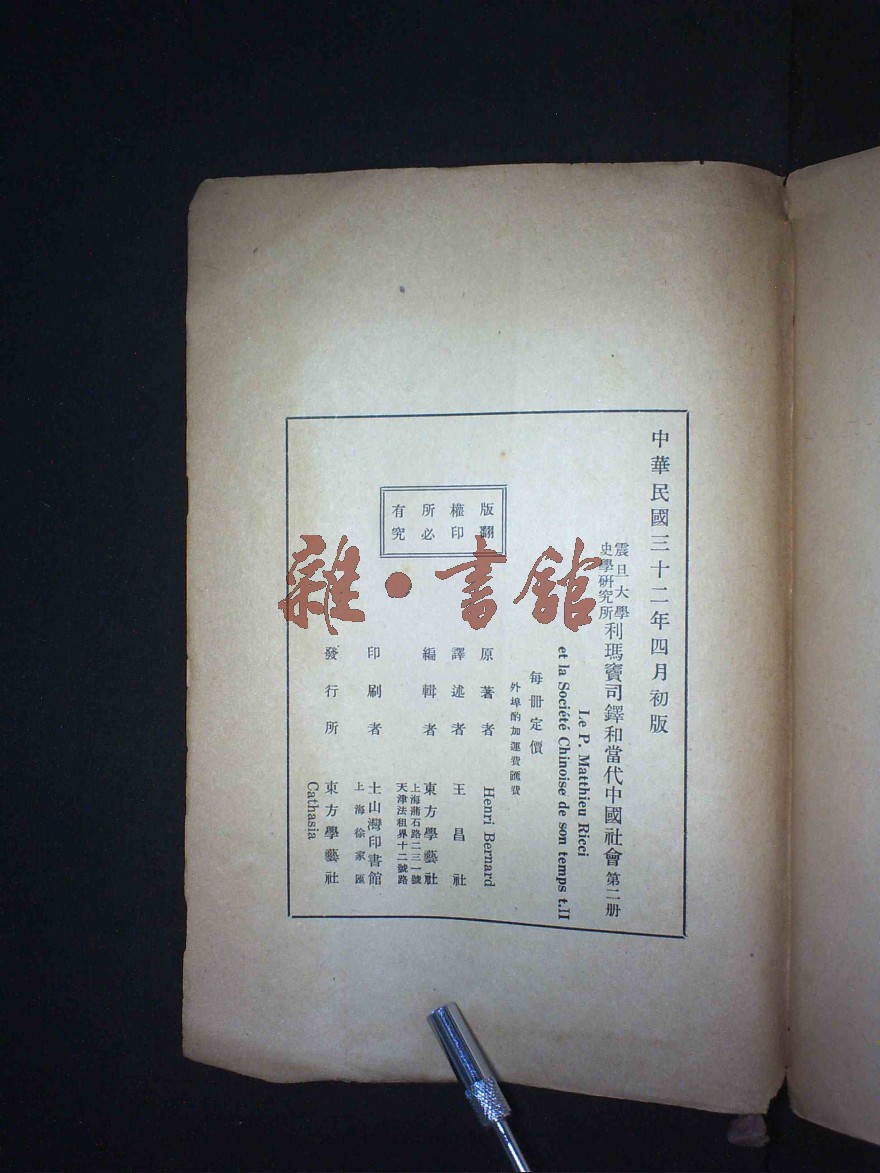 中華民國三十二年四月初版
震旦大學
史學研究所
利瑪竇司鐸和當代中國社會 第二册
Le P. Matthieu Ricci
et la Société Chinoise de son temps t.II
每册定價
外埠酌加運費匯費
版權所有
翻印必究
原著者 Henri Bernard
譯述者 王昌社
編輯者 東方學藝社
上海蒲石路二三一號
天津法租界十二號路
印刷者 土山灣印書館
上海徐家匯
發行所 東方學藝社
Cathasia
雜·書館